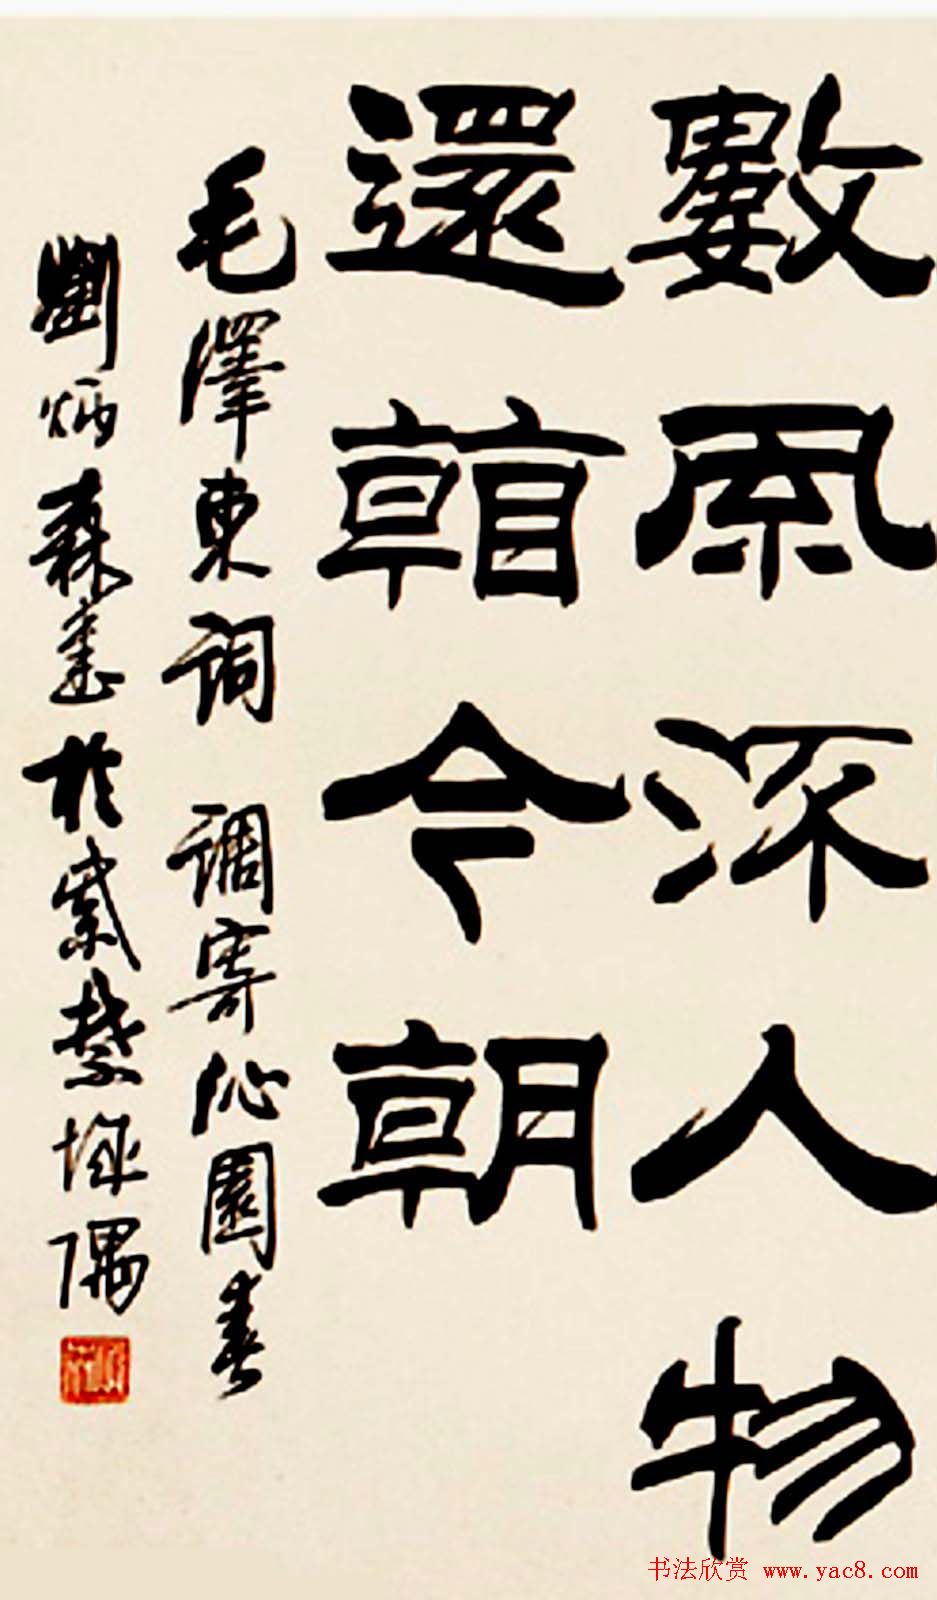 數風流人物
還看今朝
毛澤東詞 調寄沁園春
劉炳森於紫禁城隅
书法欣赏 www.yac8.com